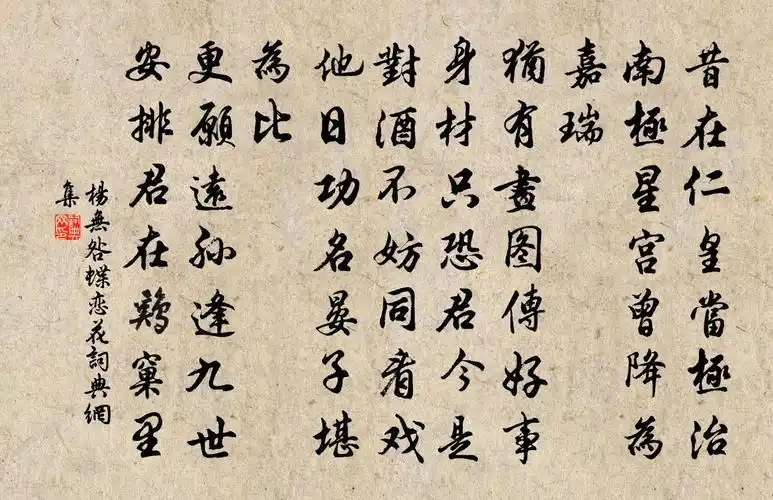 昔在仁皇當極治
南極星宮曾降為
嘉瑞
猶有畫图傳好事
身材只恐君今是
對酒不妨同看戏
他日功名晏子堪
為比
更願遠孙逢九世
安排君在鷄窠里
楊無咎蝶恋花詞典網
集